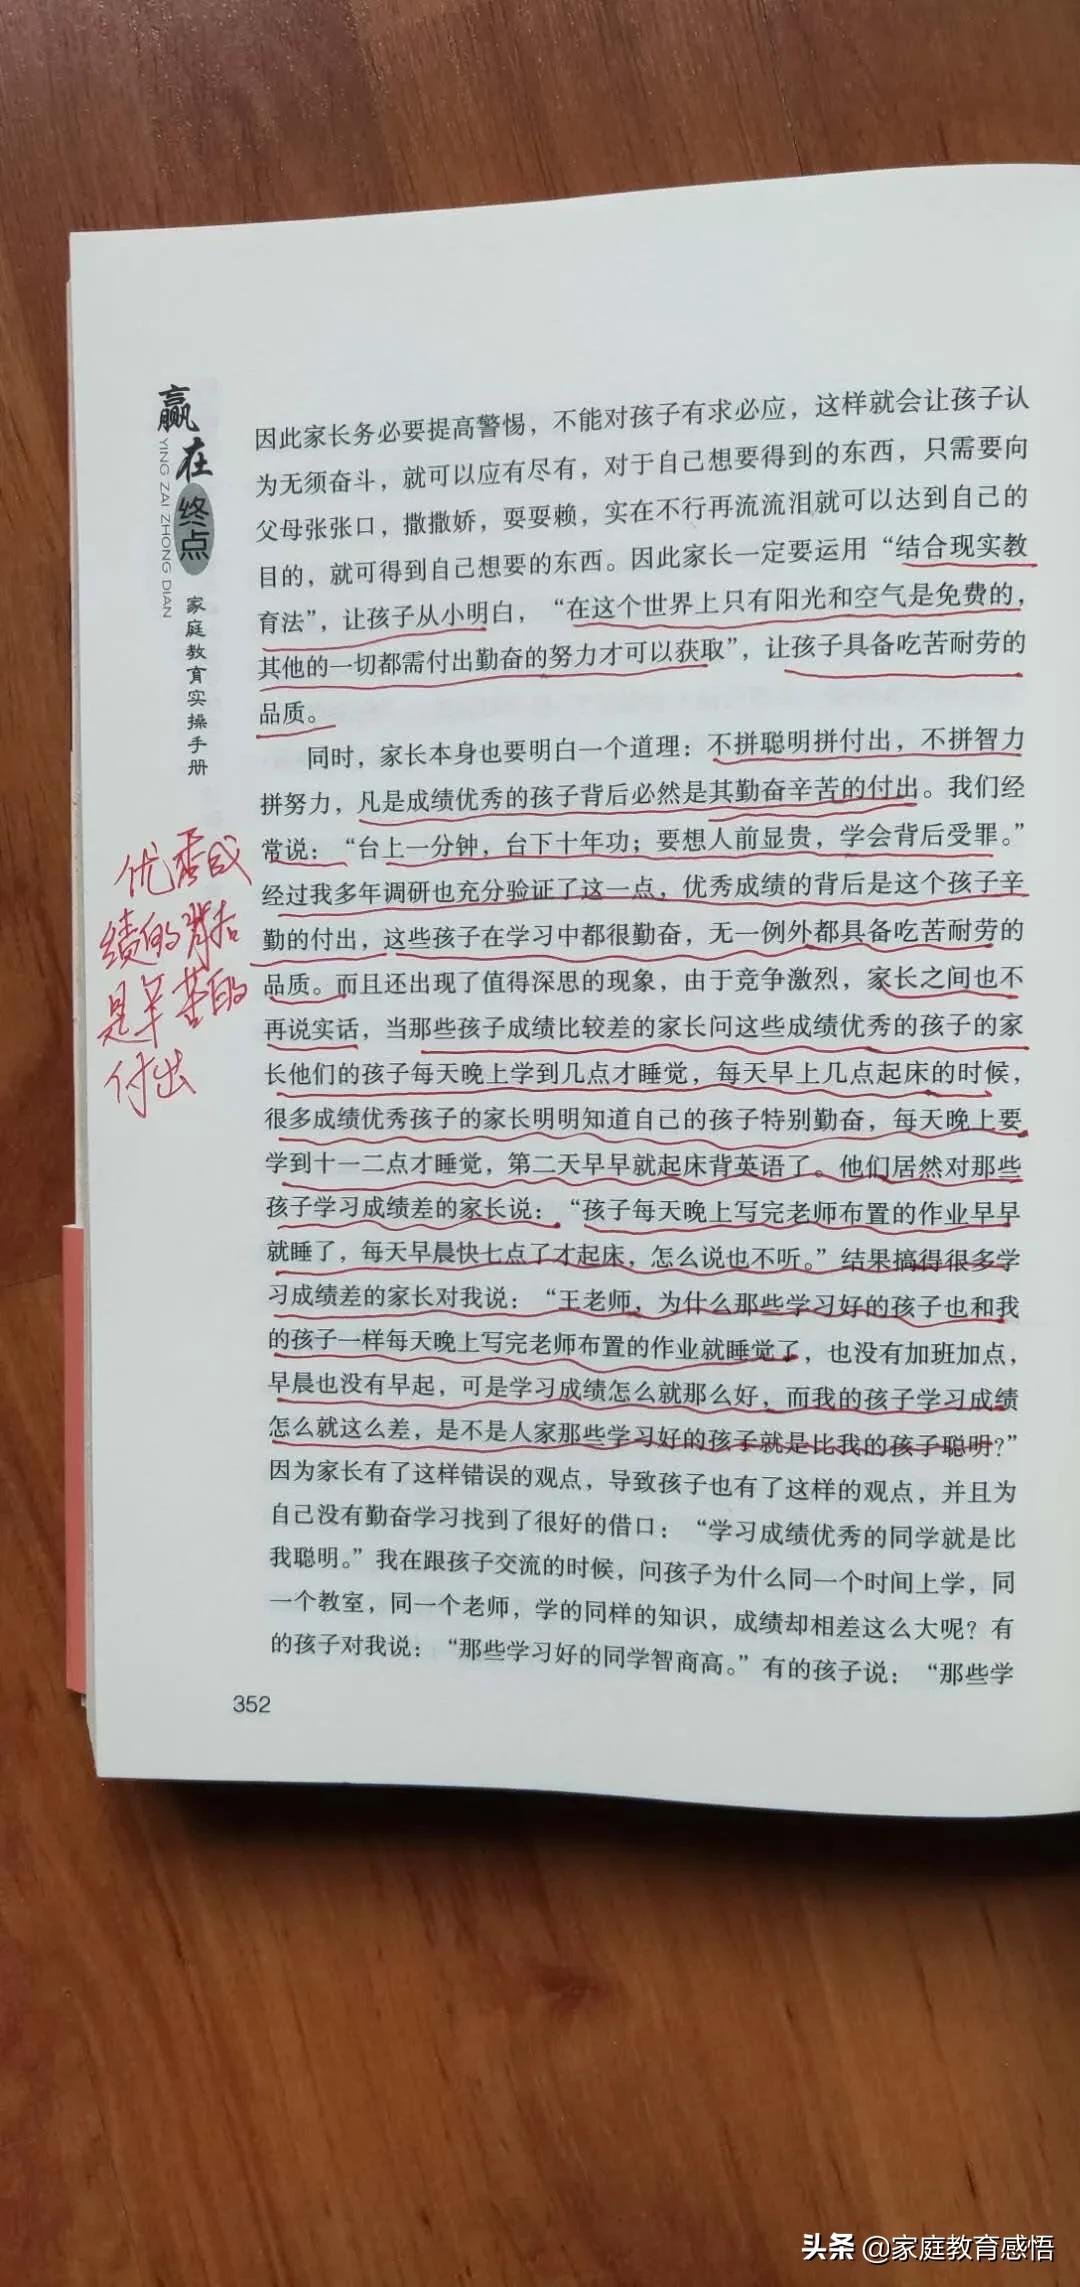 赢在终点
YING ZAI ZHONG DIAN
家庭教育实操手册
因此家长务必要提高警惕，不能对孩子有求必应，这样就会让孩子认
为无须奋斗，就可以应有尽有，对于自己想要得到的东西，只需要向
父母张张口，撒撒娇，耍耍赖，实在不行再流流泪就可以达到自己的
目的，就可得到自己想要的东西。因此家长一定要运用“结合现实教
育法”，让孩子从小明白，“在这个世界上只有阳光和空气是免费的，
其他的一切都需付出勤奋的努力才可以获取”，让孩子具备吃苦耐劳的
品质。
同时，家长本身也要明白一个道理：不拼聪明拼付出，不拼智力
拼努力，凡是成绩优秀的孩子背后必然是其勤奋辛苦的付出。我们经
常说：“台上一分钟，台下十年功；要想人前显贵，学会背后受罪。”
经过我多年调研也充分验证了这一点，优秀成绩的背后是这个孩子辛
勤的付出，这些孩子在学习中都很勤奋，无一例外都具备吃苦耐劳的
品质。而且还出现了值得深思的现象，由于竞争激烈，家长之间也不
再说实话，当那些孩子成绩比较差的家长问这些成绩优秀的孩子的家
长他们的孩子每天晚上学到几点才睡觉，每天早上几点起床的时候，
很多成绩优秀孩子的家长明明知道自己的孩子特别勤奋，每天晚上要
学到十一二点才睡觉，第二天早早就起床背英语了。他们居然对那些
孩子学习成绩差的家长说：“孩子每天晚上写完老师布置的作业早早
就睡了，每天早晨快七点了才起床，怎么说也不听。”结果搞得很多学
习成绩差的家长对我说：“王老师，为什么那些学习好的孩子也和我
的孩子一样每天晚上写完老师布置的作业就睡觉了，也没有加班加点，
早晨也没有早起，可是学习成绩怎么就那么好，而我的孩子学习成绩
怎么就这么差，是不是人家那些学习好的孩子就是比我的孩子聪明？”
因为家长有了这样错误的观点，导致孩子也有了这样的观点，并且为
自己没有勤奋学习找到了很好的借口：“学习成绩优秀的同学就是比
我聪明。”我在跟孩子交流的时候，问孩子为什么同一个时间上学，同
一个教室，同一个老师，学的同样的知识，成绩却相差这么大呢？有
的孩子对我说：“那些学习好的同学智商高。”有的孩子说：“那些学
352
优秀成
绩的背后
是辛苦的
付出
头条 @家庭教育感悟